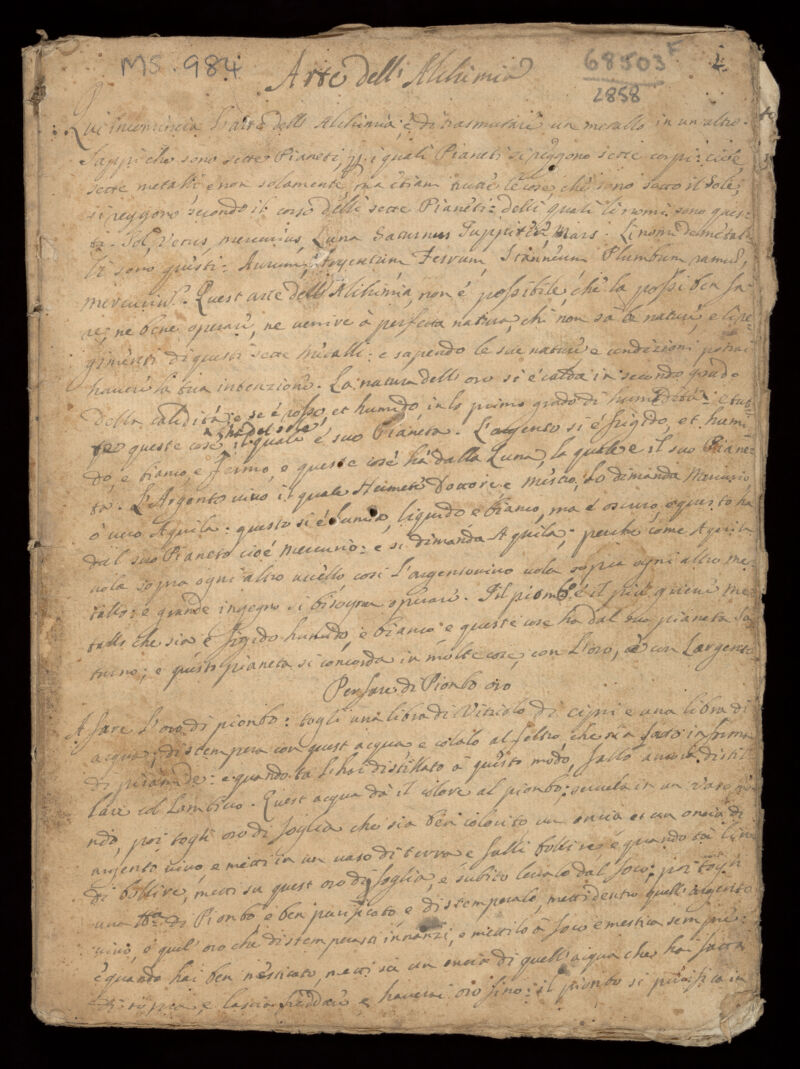 MS. 984
68503 F
2858
1
Arte dell' Alchimia
Qui incomincia l'arte dell' Alchimia, è di trasmutare un metallo in un altro.
Sappi che sono sette Pianeti, i quali Pianeti si reggono sette corpi: cioè
sette metalli, e non solamente, ma etiam tutte le cose, che sono sotto il Sole,
si reggono secondo il corso delli sette Pianeti: delli quali li nomi sono ques-
ti. Sol, Venus, mercurius, Luna Saturnus Juppiter Mars. Li nomi de metal-
li sono questi. Aurum, Argentum Ferrum, Stanneum Plumbum ramus,
mercurius. Quest arte dell' Alchimia, non é possibile, ché la possi ben fa-
re, ne bene operare, ne venire à perfetta natura, chi non sà le nature, e li re-
gimenti di questi sette metalli: e sapendo le sue nature e condizioni potrai
havere la tua intenzione. La natura dell oro si é calda in secondo grado
della calidità: e se é rosso, et humido in lo primo grado di humidità: e tut-
te queste cose hà del sole il quale é suo Pianeta. L'argento si é frigido, et humi-
do, e bianco, e fermo, e queste cose hà dalla Luna, la quale e il suo Piane-
ta. L'Argento vivo il quale Dottore e misteo, Lo dimanda Mercurio
ó vero Aquila: questo si é humido, liquido e bianco, ma é oscuro, e questo ha
dal suo Pianeto cioé mercurio: e si dimanda Aquila: perche come Aquila
vola sopra ogni altro ucello così l'argentovivo vola sopra ogni altro me-
tallo: e grande ingegno si bisogna operare. Il piombo é il più greve me-
tallo che sia e frigido humido, e bianco e queste cose ha dal suo pianeta Sa-
turno; e questo pianeta si concorda in molte cose, con L'oro, é con L'argento
Per fare di Pionbo oro
A fare L'oro di pionbo: togli una libra di Vitriolo di cipri e una libra di
acqua, distempera con quest acqua e colalo al feltro, che sia fatto in forma
di piramide: e quando tu l'hai distillato à questo modo, fallo ancora distil-
lare col Lambico. Quest acqua dà il colore al pionbo; servela in un vaso
poi togli oro di foglia che sia ben colorito un oncia et un oncia di
argento vivo, e metti in un vaso di terra e falli bollire, e quando
di bollire, metti su quest oro di foglia, e subito levalo dal foco: poi togli
una di Pionbo e ben purificato e distemperalo, metti dentro quell argento
vivo, ó quel oro che distemperasti innanzi, e mettilo à foco e mestica sempre:
é quando hai ben mesticato metti sù un oncia di quell' acqua che hai fatta
di sopra e lascia freddare e haverai oro fino: il pionbo si purifica in